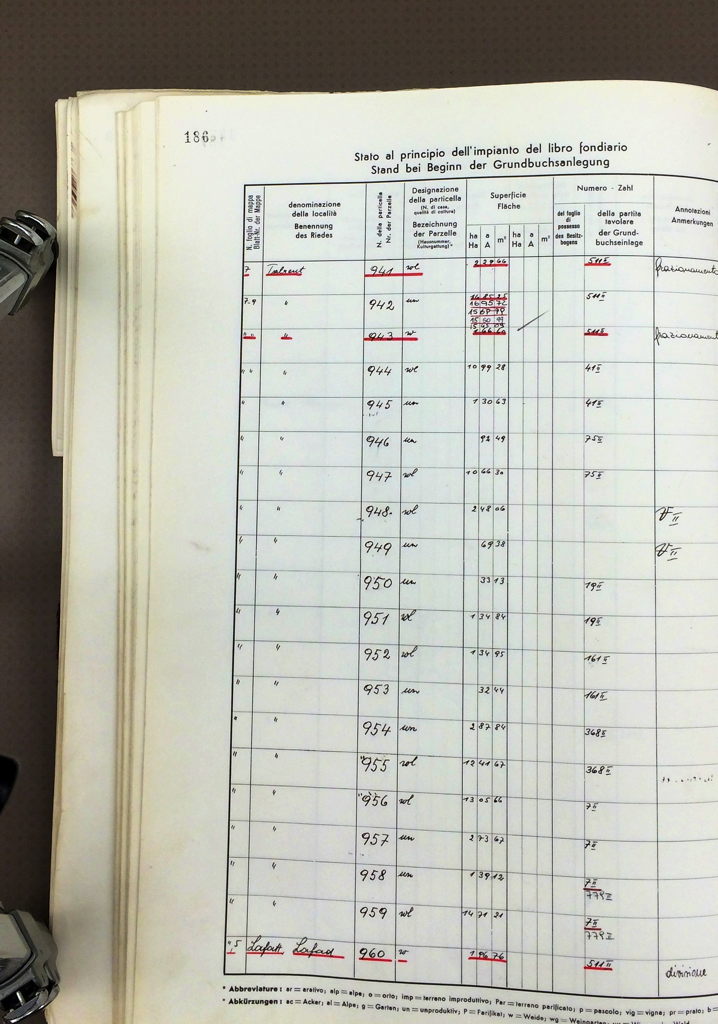 186
Stato al principio dell'impianto del libro fondiario
Stand bei Beginn der Grundbuchsanlegung
N. foglio di mappa
Blatt-Nr. der Mappe
denominazione della località
Benennung des Riedes
N. della particella
Nr. der Parzelle
Designazione della particella
(N. di casa, qualità di cultura)
Bezeichnung der Parzelle
(Hausnummer, Kulturgattung)*
Superficie
Fläche
ha a m² ha a m²
Ha A Ha A
Numero - Zahl
del foglio di possesso
des Besitzbogens
della partita tavolare
der Grundbuchseinlage
Annotazioni
Anmerkungen
7 941 wl 2 29 66 511 II
7.9 " 942 un 511 II
" " " 943 w 511 II
" " " 944 wl 10 99 28 41 II
" " 945 un 1 30 63 41 II
" " 946 un 92 49 75 II
" " 947 wl 10 66 30 75 II
" " 948 wl 2 48 06 II
" " 949 un 69 38 II
" " 950 un 33 13 19 II
" " 951 wl 1 34 84 19 II
" " 952 wl 1 34 95 161 II
" " 953 un 32 44 161 II
" " 954 un 2 87 84 368 II
" " 955 wl 12 41 67 368 II
" " 956 wl 13 05 66 7 II
" " 957 un 2 73 67 7 II
" " 958 un 1 39 12 7 II
779 II
" " 959 wl 14 71 21 7 II
779 II
" 5 Lafatt Lafad 960 w 1 96 76 511 II divisione
* Abbreviature: ar = arativo; alp = alpe; o = orto; imp = terreno improduttivo; Par = terreno parificato; p = pascolo; vig = vigna; pr = prato; b =
* Abkürzungen: ac = Acker; al = Alpe; g = Garten; un = unproduktiv; P = Parifikat; w = Weide; wg = Weingarten;